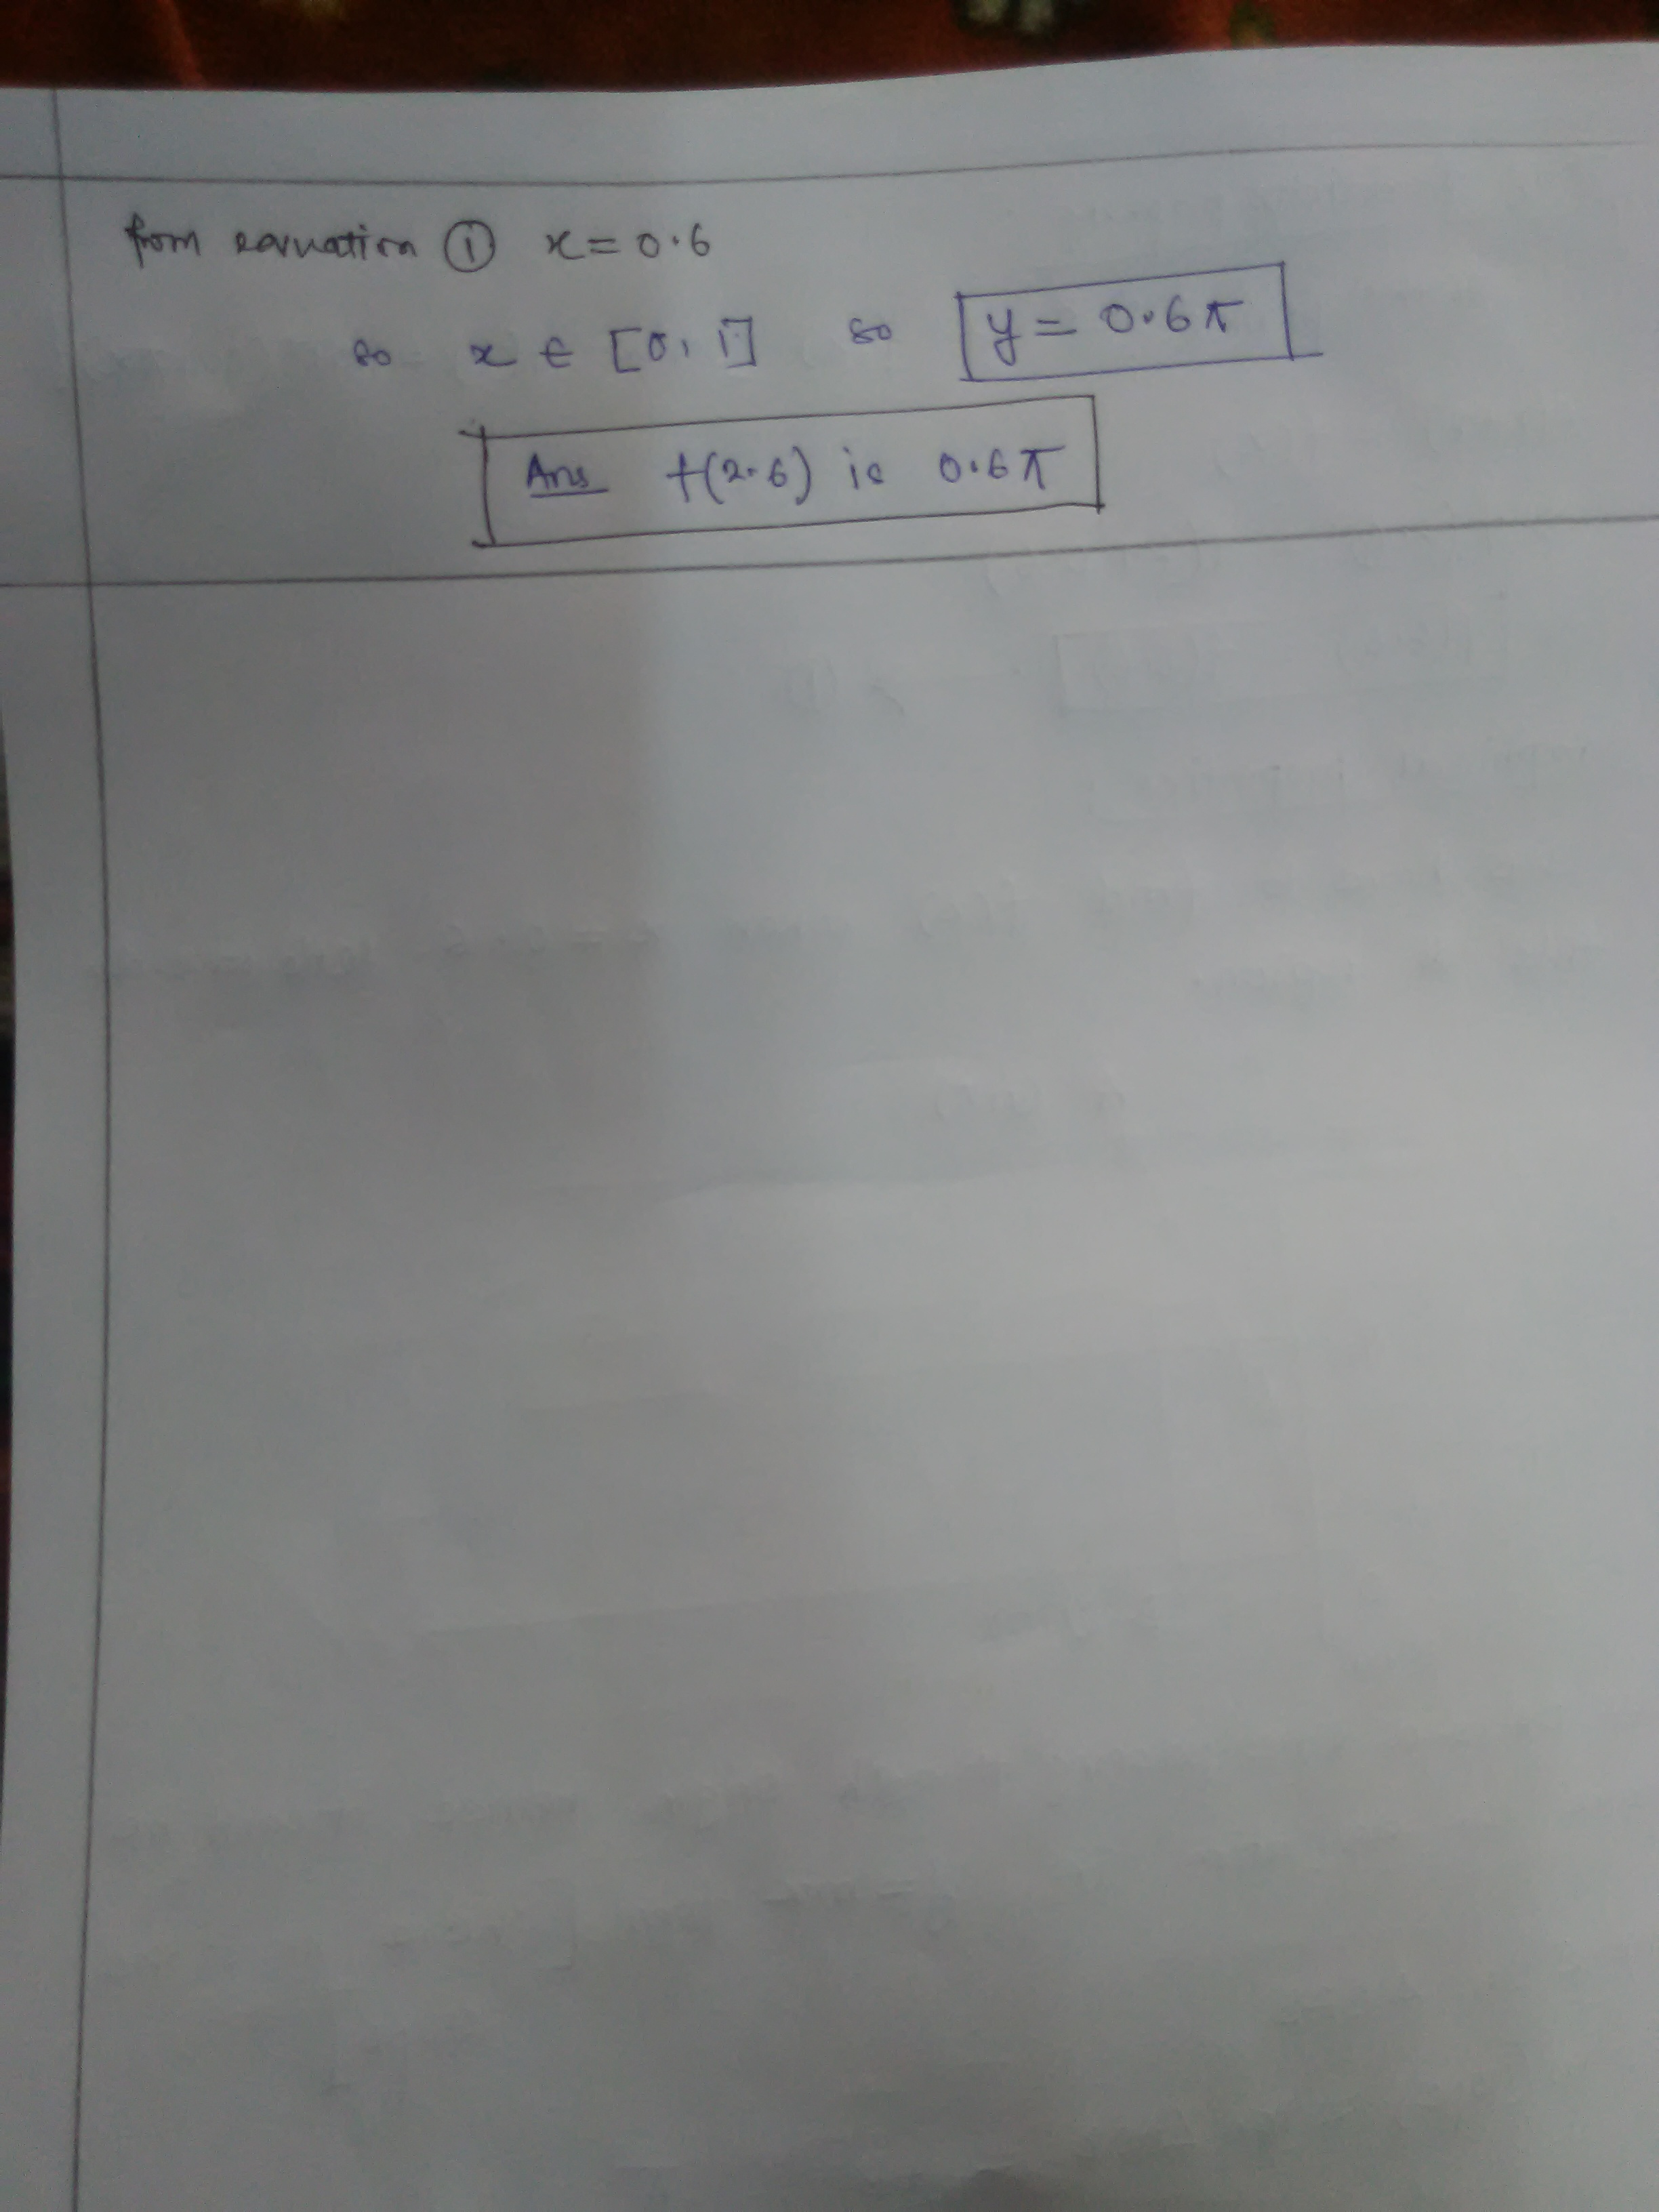 from equation ① x = 0.6
so x ∈ [0, 1] so y = 0.6π
Ans f(2.6) is 0.6π